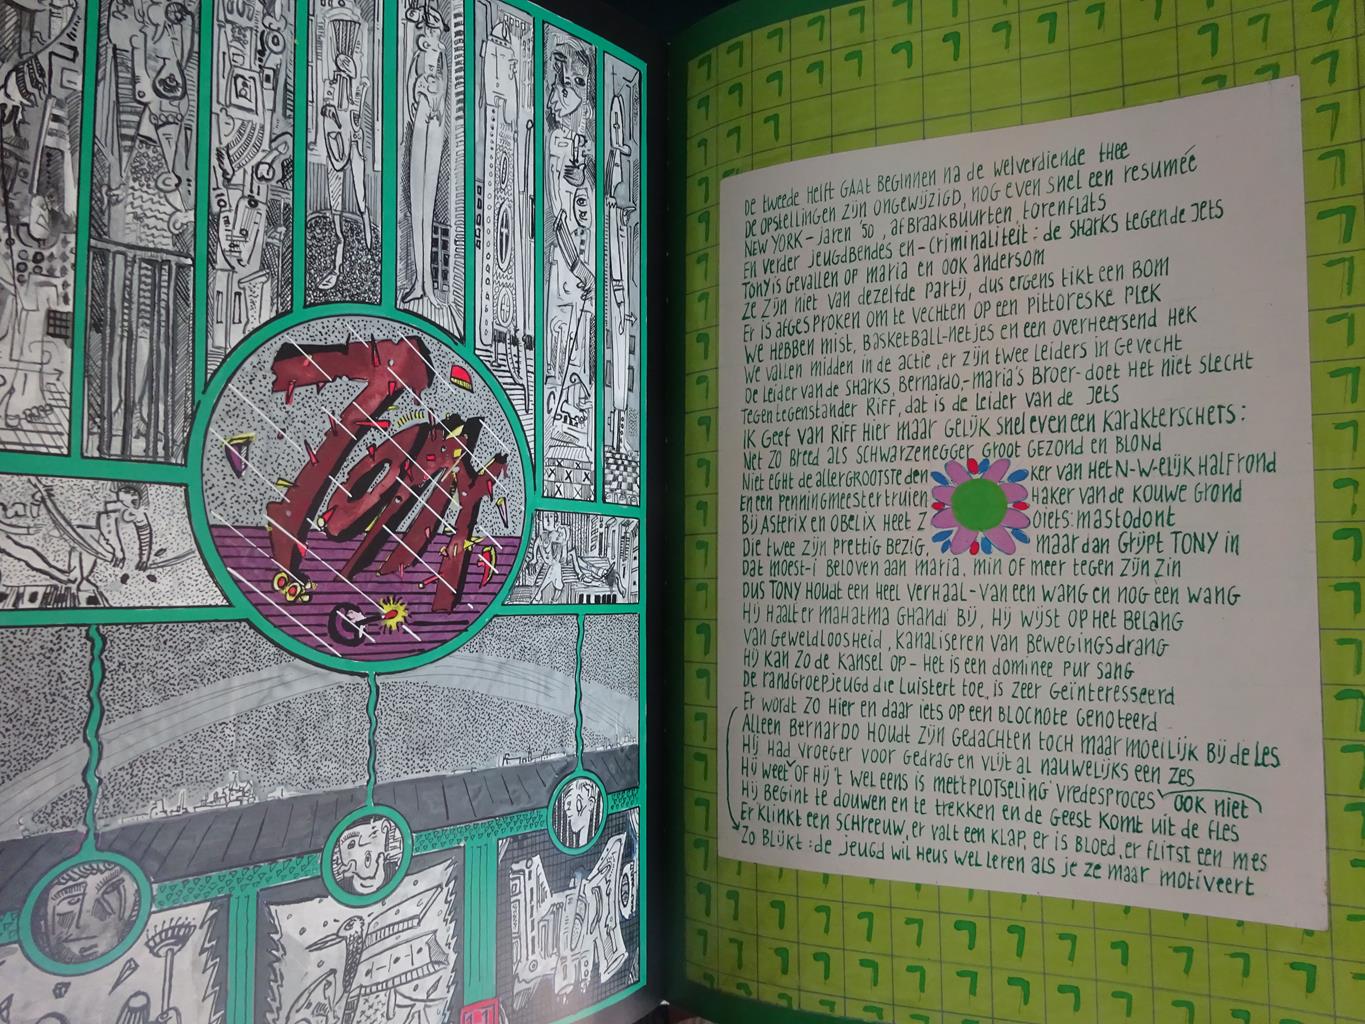 TONY
11
De tweede Helft GAAT Beginnen na de welverdiende thee
De opstellingen zijn ongewijzigd, nog even snel een resumeé
New York - jaren '50, afbraakbuurten, torenflats
En verder jeugdbendes en - criminaliteit : de Sharks tegen de Jets
Tony is gevallen op Maria en ook andersom
Ze zijn niet van dezelfde partij, dus ergens tikt een BOM
Er is afgesproken om te vechten op een pittoreske plek
We hebben mist, basketball-netjes en een overheersend hek
We vallen midden in de actie, er zijn twee leiders in gevecht
De leider van de Sharks, Bernardo, - Maria's broer - doet het niet slecht
Tegen tegenstander Riff, dat is de leider van de Jets
Ik geef van Riff hier maar gelijk snel even een karakterschets :
Net zo breed als Schwarzenegger, groot gezond en blond
Niet echt de allergrootste denker van het N-W-elijk halfrond
En een penningmeestertruienhaker van de kouwe grond
Bij Asterix en Obelix heet zoiets: mastodont
Die twee zijn prettig bezig, maar dan grijpt TONY in
Dat moest-i beloven aan Maria, min of meer tegen zijn zin
Dus TONY houdt een heel verhaal - van een wang en nog een wang
Hij haalt er Mahatma Ghandi bij, hij wijst op het belang
Van geweldloosheid, kanaliseren van bewegingsdrang
Hij kan zo de kansel op - het is een dominee pur sang
De randgroepjeugd die luistert toe, is zeer geïnteresseerd
Er wordt zo hier en daar iets op een blocnote genoteerd
Alleen Bernardo houdt zijn gedachten toch maar moeilijk bij de les
Hij had vroeger voor gedrag en vlijt al nauwelijks een zes
Hij weet of hij 't wel eens is met 't plotseling vredesproces ook niet
Hij begint te douwen en te trekken en de geest komt uit de fles
Er klinkt een schreeuw, er valt een klap, er is bloed, er flitst een mes
Zo blijkt : de jeugd wil heus wel leren als je ze maar motiveert